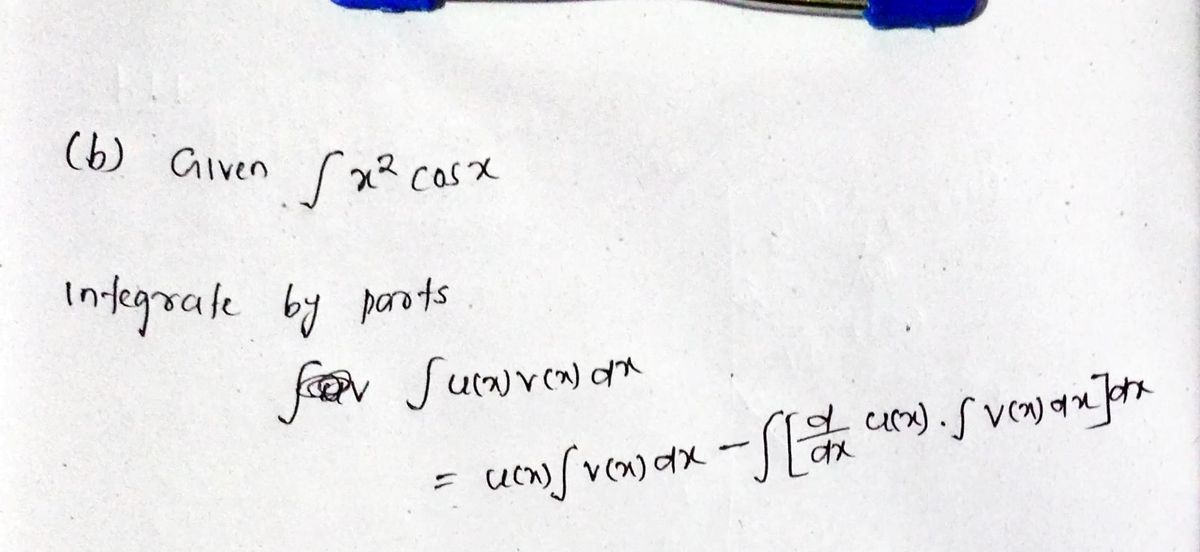 (b) Given ∫ x² cos x
Integrate by parts
∫ u(x) v(x) dx
= u(x) ∫ v(x) dx − ∫ [ d/dx u(x) . ∫ v(x) dx ] dx